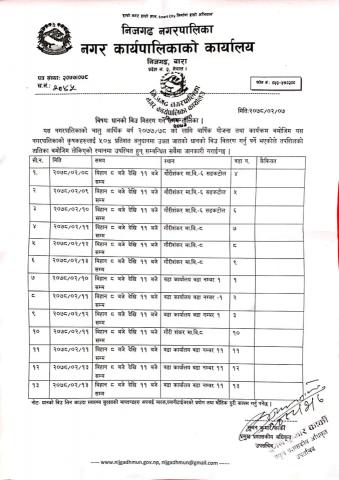 निजगढ नगरपालिका
नगर कार्यपालिकाको कार्यालय
निजगढ, बारा
प्रदेश नं. २, नेपाल
पत्र संख्याः २०७७/०७८
च.नं.:
मितिः२०७८/०२/०७
विषयः धानको बिउ वितरण गर्ने तालिका ।
यस नगरपालिकाको चालु आर्थिक वर्ष २०७७/७८ को लागि वार्षिक योजना तथा कार्यक्रम बमोजिम यस
नगरपालिकाका कृषकहरुलाई ५०% प्रतिशत अनुदानमा उन्नत जातको धानको बिउ वितरण गर्नु पर्ने भएकोले तपसिलको
तालिका बमोजिम तोकिएको स्थानमा उपस्थित हुन सम्बन्धित सबैमा जानकारी गराईन्छ ।
सी.न. मिति समय स्थान वडा न. कैफियत
१. २०७८/०२/०८ बिहान ८ बजे देखि ११ बजे सम्म गौरीशंकर मा.वि.-६ सडकटोल ४
२ २०७८/०२/०९ बिहान ८ बजे देखि ११ बजे सम्म गौरीशंकर मा.वि.-६ सडकटोल ५
३ २०७८/०२/१० बिहान ८ बजे देखि ११ बजे सम्म गौरीशंकर मा.वि.-६ सडकटोल ६
४ २०७८/०२/११ बिहान ८ बजे देखि ११ बजे सम्म गौरीशंकर मा.वि.-८ ७
५ २०७८/०२/११ बिहान ८ बजे देखि ११ बजे सम्म गौरीशंकर मा.वि.-८ ८
६ २०७८/०२/१३ बिहान ८ बजे देखि ११ बजे सम्म गौरीशंकर मा.वि.-८ ९
७ २०७८/०२/१० बिहान ८ बजे देखि ११ बजे सम्म वडा कार्यालय वडा नम्बर १ १
८ २०७८/०२/११ बिहान ८ बजे देखि ११ बजे सम्म वडा कार्यालय वडा नम्बर २
९ २०७८/०२/१२ बिहान ८ बजे देखि ११ बजे सम्म वडा कार्यालय वडा नम्बर ३ ३
१० २०७८/०२/११ बिहान ८ बजे देखि ११ बजे सम्म गौरी शंकर मा.वि.८ १०
११ २०७८/०२/११ बिहान ८ बजे देखि ११ बजे सम्म वडा कार्यालय वडा नम्बर ११ ११
१२ २०७८/०२/१२ बिहान ८ बजे देखि ११ बजे सम्म वडा कार्यालय वडा नम्बर १२ १२
१३ २०७८/०२/१३ बिहान ८ बजे देखि ११ बजे सम्म वडा कार्यालय वडा नम्बर १३ १३
प्रमुख प्रशासकीय अधिकृत
उपसचिव
www.nijgadhmun.gov.np, nijgadhmun@gmail.com